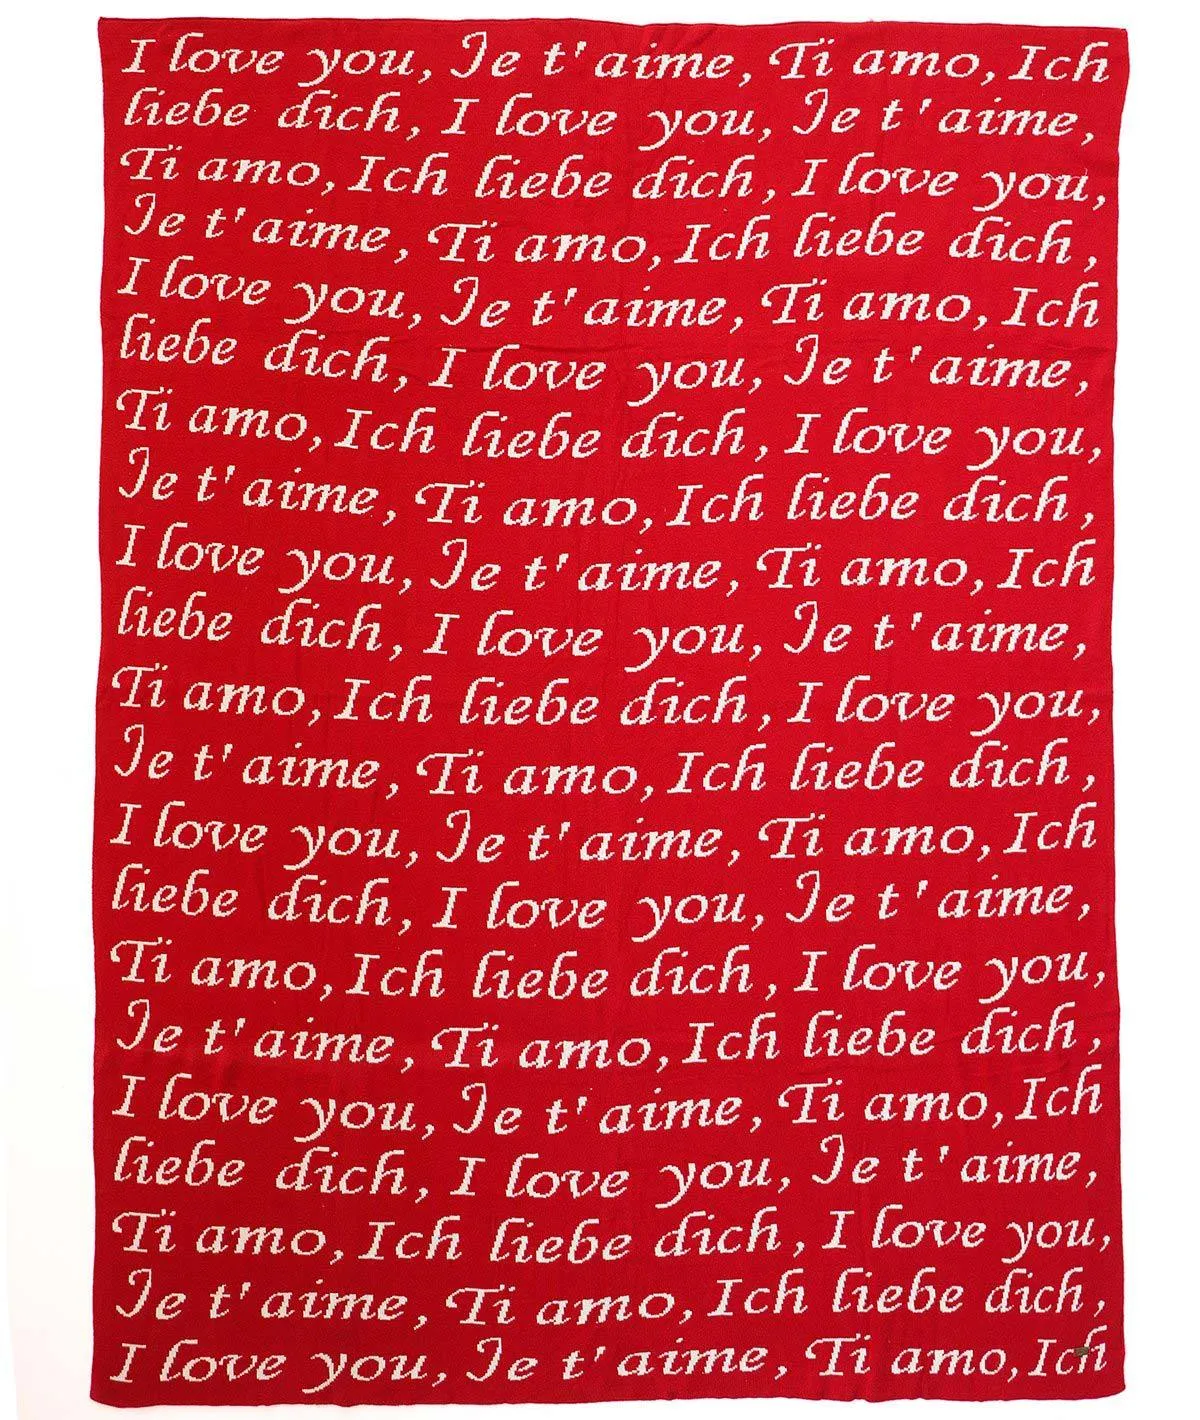 I love you, Je t'aime, Ti amo, Ich
liebe dich, I love you, Je t'aime,
Ti amo, Ich liebe dich, I love you,
Je t'aime, Ti amo, Ich liebe dich,
I love you, Je t'aime, Ti amo, Ich
liebe dich, I love you, Je t'aime,
Ti amo, Ich liebe dich, I love you,
Je t'aime, Ti amo, Ich liebe dich,
I love you, Je t'aime, Ti amo, Ich
liebe dich, I love you, Je t'aime,
Ti amo, Ich liebe dich, I love you,
Je t'aime, Ti amo, Ich liebe dich,
I love you, Je t'aime, Ti amo, Ich
liebe dich, I love you, Je t'aime,
Ti amo, Ich liebe dich, I love you,
Je t'aime, Ti amo, Ich liebe dich,
I love you, Je t'aime, Ti amo, Ich
liebe dich, I love you, Je t'aime,
Ti amo, Ich liebe dich, I love you,
Je t'aime, Ti amo, Ich liebe dich,
I love you, Je t'aime, Ti amo, Ich